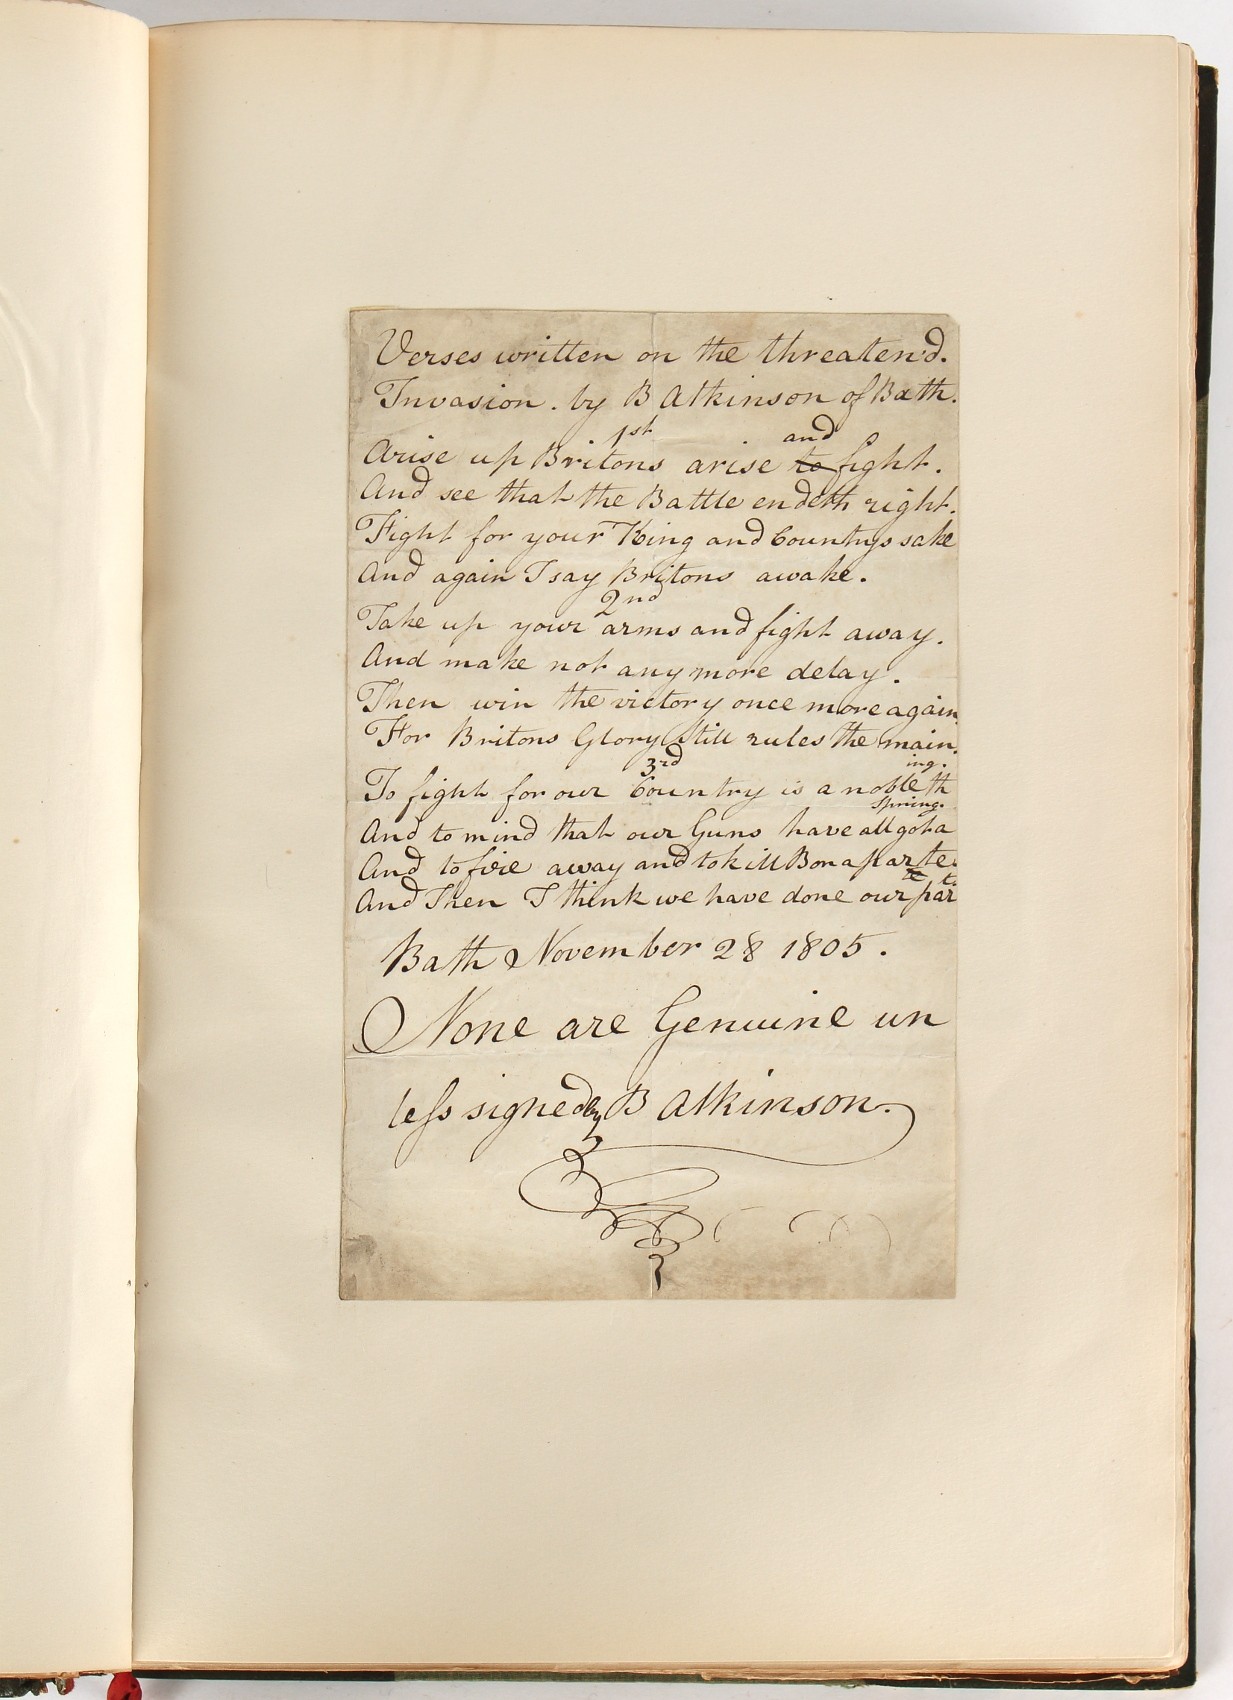 Verses written on the threaten'd.
Invasion. by B Atkinson of Bath.
1st
Arise up Britons arise to and fight.
And see that the Battle endeth right.
Fight for your King and Countrys sake
And again I say Britons awake.
2nd
Take up your arms and fight away.
And make not any more delay.
Then win the victory once more again.
For Britons Glory still rules the main.
3rd
To fight for our Country is a noble thing.
And to mind that our Guns have all got a Spring.
And to fire away and to kill Bonaparte.
And Then I think we have done our part.
Bath November 28 1805.
None are Genuine un
less signed by B Atkinson.